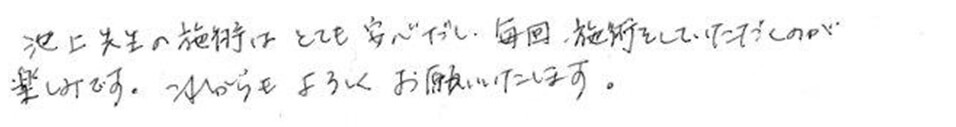 池上先生の施術はとても安心だし、毎回、施術をしていただくのが
楽しみです。これからもよろしくお願いいたします。